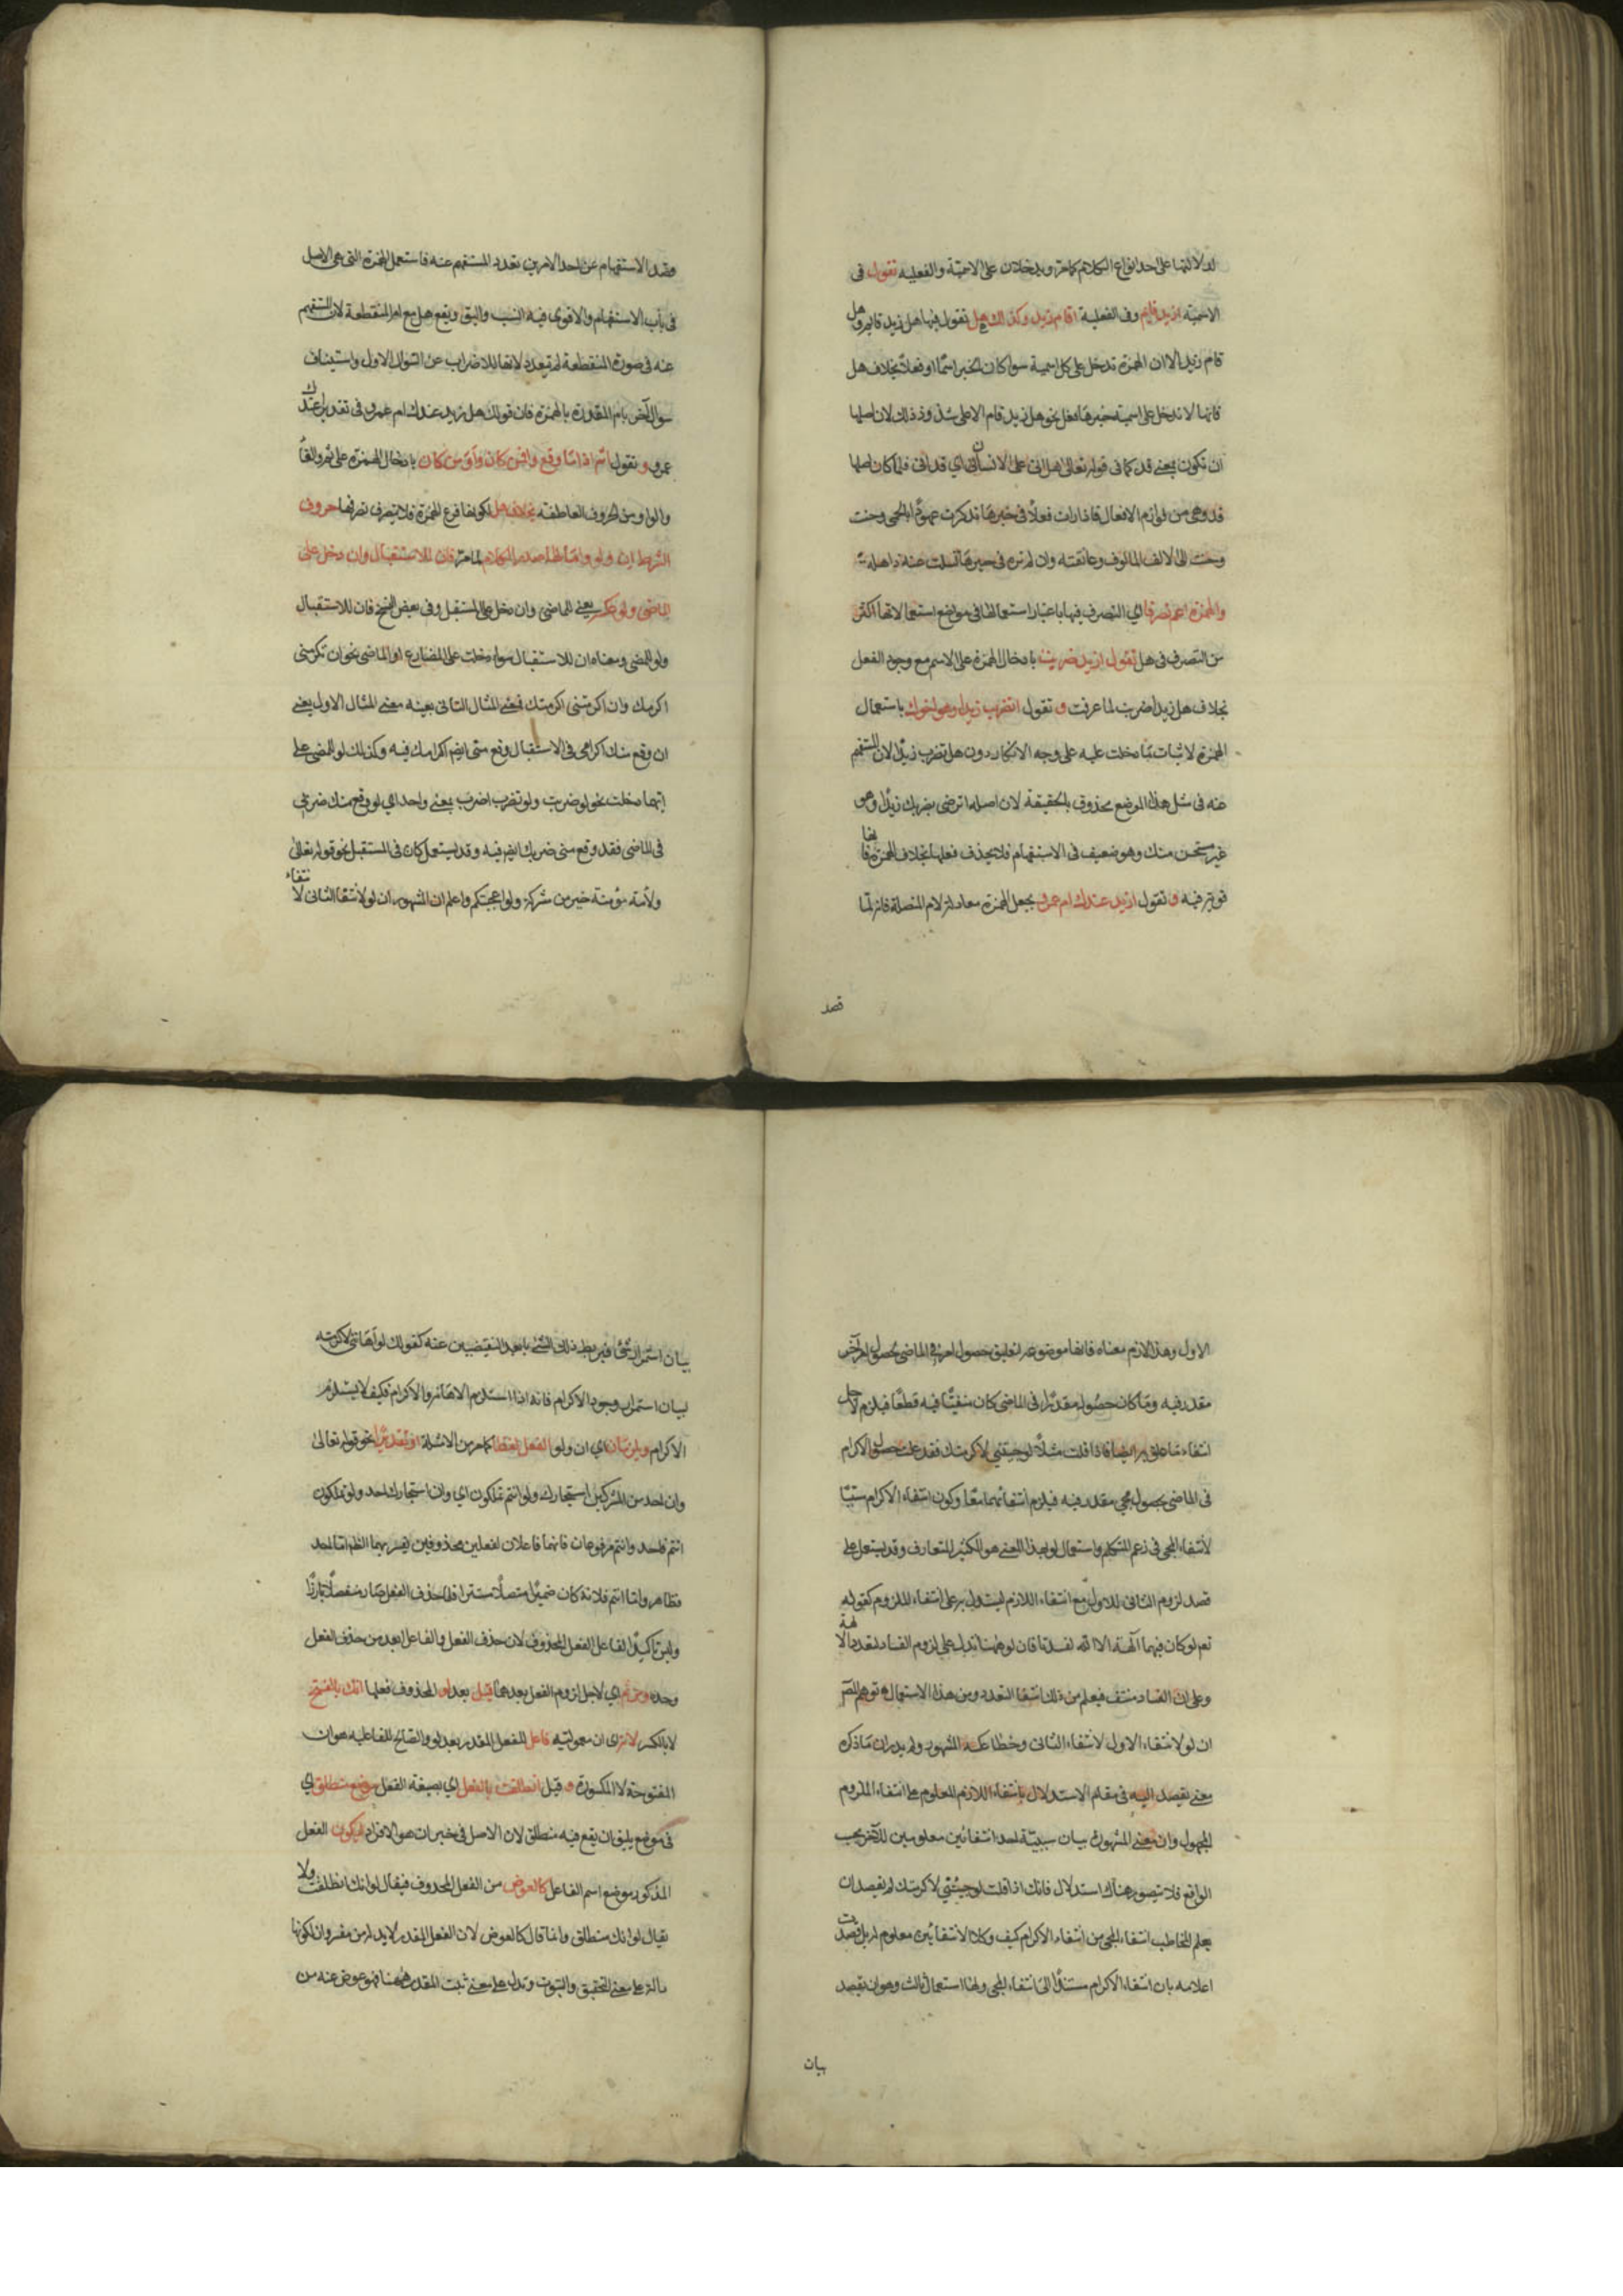 لدلالتها على احد انواع الكلام كما مر ويدخلان على الاسمية والفعلية تقول فى
الاسمية ازيد قايم وفى الفعلية اقام زيد وكذلك هل تقول فيها هل زيد قايم وهل
قام زيد الا ان الهمزة تدخل على كل اسمية سوا كان الخبر اسمًا او فعلاً بخلاف هل
فانها لا تدخل على اسمية خبرها فعل نحو هل زيد قام الا على شذوذ وذلك لان اصلها
ان تكون بمعنى قد كما فى قوله تعالى هل اتى على الانسان اي قد اتى فلما كان اصلها
قد وهى من لوازم الافعال فاذا رات فعلاً فى خبرها تذكرت عهودًا بالحمى وحنت
وحنت الى الالف المالوف وعانقته وان لم تره فى حيزها تسلت عنه ذاهلة
والهمزة اعم تصرفا اي التصرف فيها باعتبار استعمالها فى مواضع استعمالاتها اكثر
من التصرف فى هل تقول ازيدا ضربت بادخال الهمزة على الاسم مع وجود الفعل
بخلاف هل زيدا ضربت لما عرفت و تقول اتضرب زيدا وهو اخوك باستعمال
الهمزة لاثبات ما دخلت عليه على وجه الانكار دون هل تضرب زيدًا لان المستفهم
عنه فى مثل هذا الموضع محذوف بالحقيقة لان اصله اترضى بضربك زيدًا وهو
غير مستحسن منك وهو ضعيف فى الاستفهام فلا يحذف فعلها بخلاف الهمزة فانها
قوية فيه و تقول ازيد عندك ام عمرو بجعل الهمزة معادلة لام المتصلة فانه لما
قصد
وقصد الاستفهام عن احد الامرين تعدد المستفهم عنه فاستعمل الهمزة التى هى الاصل
فى باب الاستفهام والاقوى فيه انسب واليق ويقع هل مع ام المنقطعة لان المستفهم
عنه فى صورة المنقطعة لم يتعدد لانها للاضراب عن السوال الاول واستيناف
سوال آخر بام المقدرة بالهمزة فان قولك هل زيد عندك ام عمرو فى تقدير اعندك
عمرو و تقول اثم اذا ما وقع وافمن كان واو من كان بادخال الهمزة على ثم والفا
والواو من الحروف العاطفة بخلاف هل لكونها فرع الهمزة فلا تتصرف تصرفها حروف
الشرط ان ولو واما لها صدر الكلام لما مر فان للاستقبال وان دخل على
الماضى ولو عكسه يعنى للماضى وان دخل على المستقبل وفى بعض النسخ فان للاستقبال
ولو للمضى ومعناه ان للاستقبال سواء دخلت على المضارع او الماضى نحو ان تكرمنى
اكرمك وان اكرمتنى اكرمتك فمعنى المثال الثانى بعينه معنى المثال الاول يعنى
ان وقع منك اكرامى فى الاستقبال وقع منى ايضا اكرامك فيه وكذلك لو للمضى على
ايهما دخلت نحو لو ضربت ولو تضرب اضرب بمعنى واحد اي لو وقع منك ضربى
فى الماضى فقد وقع منى ضربك ايضا فيه وقد يستعمل كان فى المستقبل نحو قوله تعالى
ولامة مومنة خير من مشركة ولو اعجبتكم واعلم ان المشهور ان لو لانتفا الثانى لانتفاء
الاول وهذا لازم معناه فانها موضوعة لتعليق حصول امر فى الماضى بحصول امر آخر
مقدر فيه وما كان حصوله مقدرًا فى الماضى كان منفيًا فيه قطعًا فيلزم لاجل
انتفاءه انتفاء ما علق به ايضا فاذا قلت مثلاً لو جيتنى لاكرمتك فقد علقت حصول الاكرام
فى الماضى بحصول مجى مقدر فيه فيلزم انتفائهما معًا وكون انتفاء الاكرام مسببًا
لانتفاء المجى فى زعم المتكلم واستعمال لو بهذا المعنى هو الكثير المتعارف وقد يستعمل على
قصد لزوم الثانى للاول مع انتفاء اللازم ليستدل به على انتفاء الملزوم كقوله
تعم لو كان فيهما آلهة الا الله لفسدتا فان لو ههنا تدل على لزوم الفساد لتعدد الالهة
وعلى ان الفساد منتف فيعلم من ذلك انتفا التعدد ومن هذا الاستعمال توهم المص
ان لو لانتفاء الاول لانتفاء الثانى وخطا عكسه المشهور ولم يدر ان ما ذكره
معنى يقصد اليه فى مقام الاستدلال بانتفاء اللازم المعلوم على انتفاء الملزوم
المجهول وان معنى المشهور بيان سببية احد انتفائين معلومين للآخر بحسب
الواقع فلا يتصور هناك استدلال فانك اذا قلت لو جئتنى لاكرمتك لم تقصد ان
يعلم المخاطب انتفاء المجى من انتفاء الاكرام كيف وكلا الانتفائين معلوم له بل قصدت
اعلامه بان انتفاء الاكرام مستند الى انتفاء المجى ولها استعمال ثالث وهو ان يقصد
بيان
بيان استمرار شئ فيربط ذلك الشئ بابعد النقيضين عنه كقولك لو اهاننى لاكرمته
لبيان استمرار وجود الاكرام فانه اذا استلزم الاهانة الاكرام فكيف لا يستلزم
الاكرام ويلزمان اي ان ولو الفعل لفظا كما مر من الامثلة او تقديرًا نحو قوله تعالى
وان احد من المشركين استجارك ولو انتم تملكون اي وان استجارك احد ولو تملكون
انتم فاحد وانتم مرفوعان فانهما فاعلان لفعلين محذوفين يفسرهما الظاهر اما احد
فظاهر واما انتم فلانه كان ضميرًا متصلاً مستترا فلما حذف الفعل صار منفصلاً بارزًا
وليس تاكيدًا لفاعل الفعل المحذوف لان حذف الفعل والفاعل ابعد من حذف الفعل
وحده ومن ثم اي لاجل لزوم الفعل بعدهما قيل بعد لو المحذوف فعلها انك بالفتح
لا بالكسر لانه اي ان معموليه فاعل للفعل المقدر بعد لو والصالح للفاعلية هو ان
المفتوحة لا المكسورة و قيل انطلقت بالفعل اي بصيغة الفعل موضع منطلق اي
فى موضع يليق ان يقع فيه منطلق لان الاصل فى خبر ان هو الافراد ليكون الفعل
المذكور موضع اسم الفاعل كالعوض من الفعل المحذوف فيقال لو انك انطلقت ولا
يقال لو انك منطلق وانما قال كالعوض لان الفعل المقدر لابد له من مفسر وان لكونها
دالة على معنى التحقيق والثبوت وتدل على معنى ثبت المقدر ههنا فهو عوض عنه من